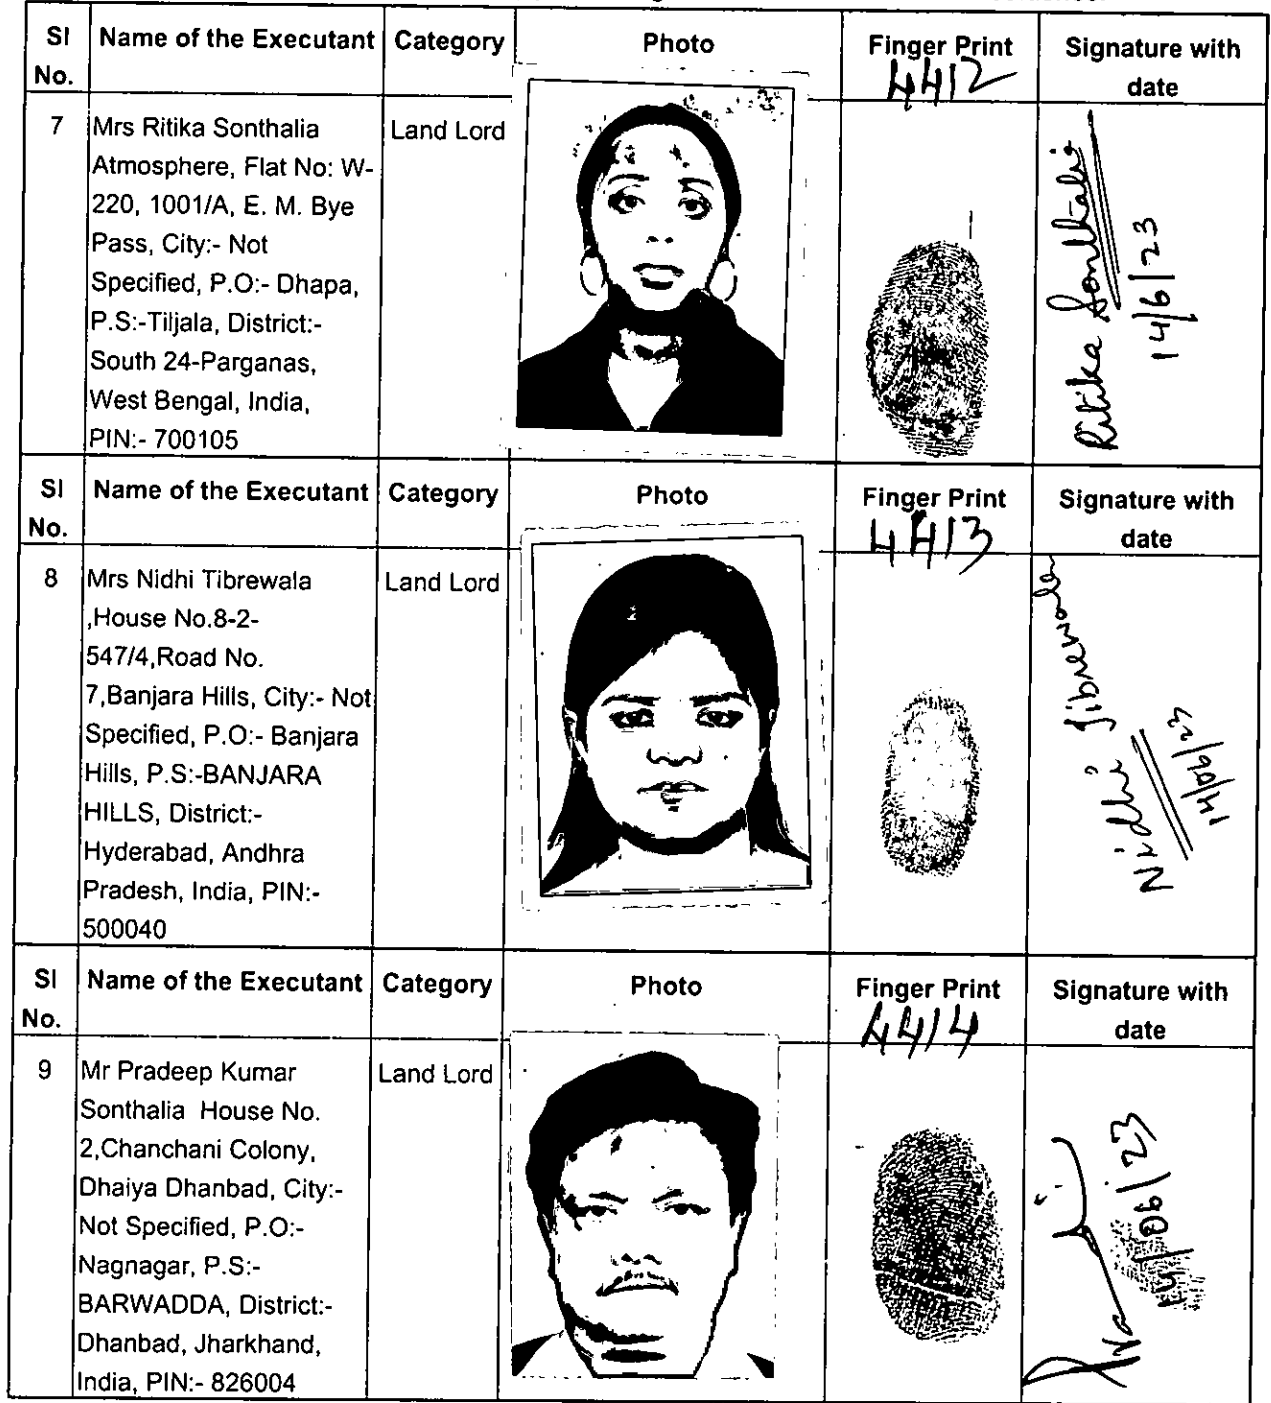 Sl No. Name of the Executant Category Photo Finger Print Signature with date
4412
7 Mrs Ritika Sonthalia Land Lord
Atmosphere, Flat No: W-
220, 1001/A, E. M. Bye
Pass, City:- Not
Specified, P.O:- Dhapa,
P.S:-Tiljala, District:-
South 24-Parganas,
West Bengal, India,
PIN:- 700105
Ritika Sonthalia
14/6/23
Sl No. Name of the Executant Category Photo Finger Print Signature with date
4413
8 Mrs Nidhi Tibrewala Land Lord
,House No.8-2-
547/4,Road No.
7,Banjara Hills, City:- Not
Specified, P.O:- Banjara
Hills, P.S:-BANJARA
HILLS, District:-
Hyderabad, Andhra
Pradesh, India, PIN:-
500040
Nidhi Tibrewala
14/06/23
Sl No. Name of the Executant Category Photo Finger Print Signature with date
4414
9 Mr Pradeep Kumar Land Lord
Sonthalia House No.
2,Chanchani Colony,
Dhaiya Dhanbad, City:-
Not Specified, P.O:-
Nagnagar, P.S:-
BARWADDA, District:-
Dhanbad, Jharkhand,
India, PIN:- 826004
14/06/23